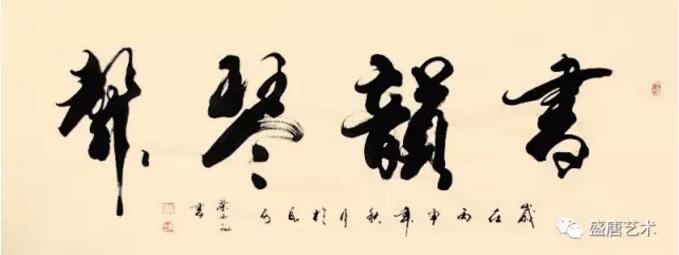 書韻琴聲
歲在丙申年秋月於
書
盛唐艺术